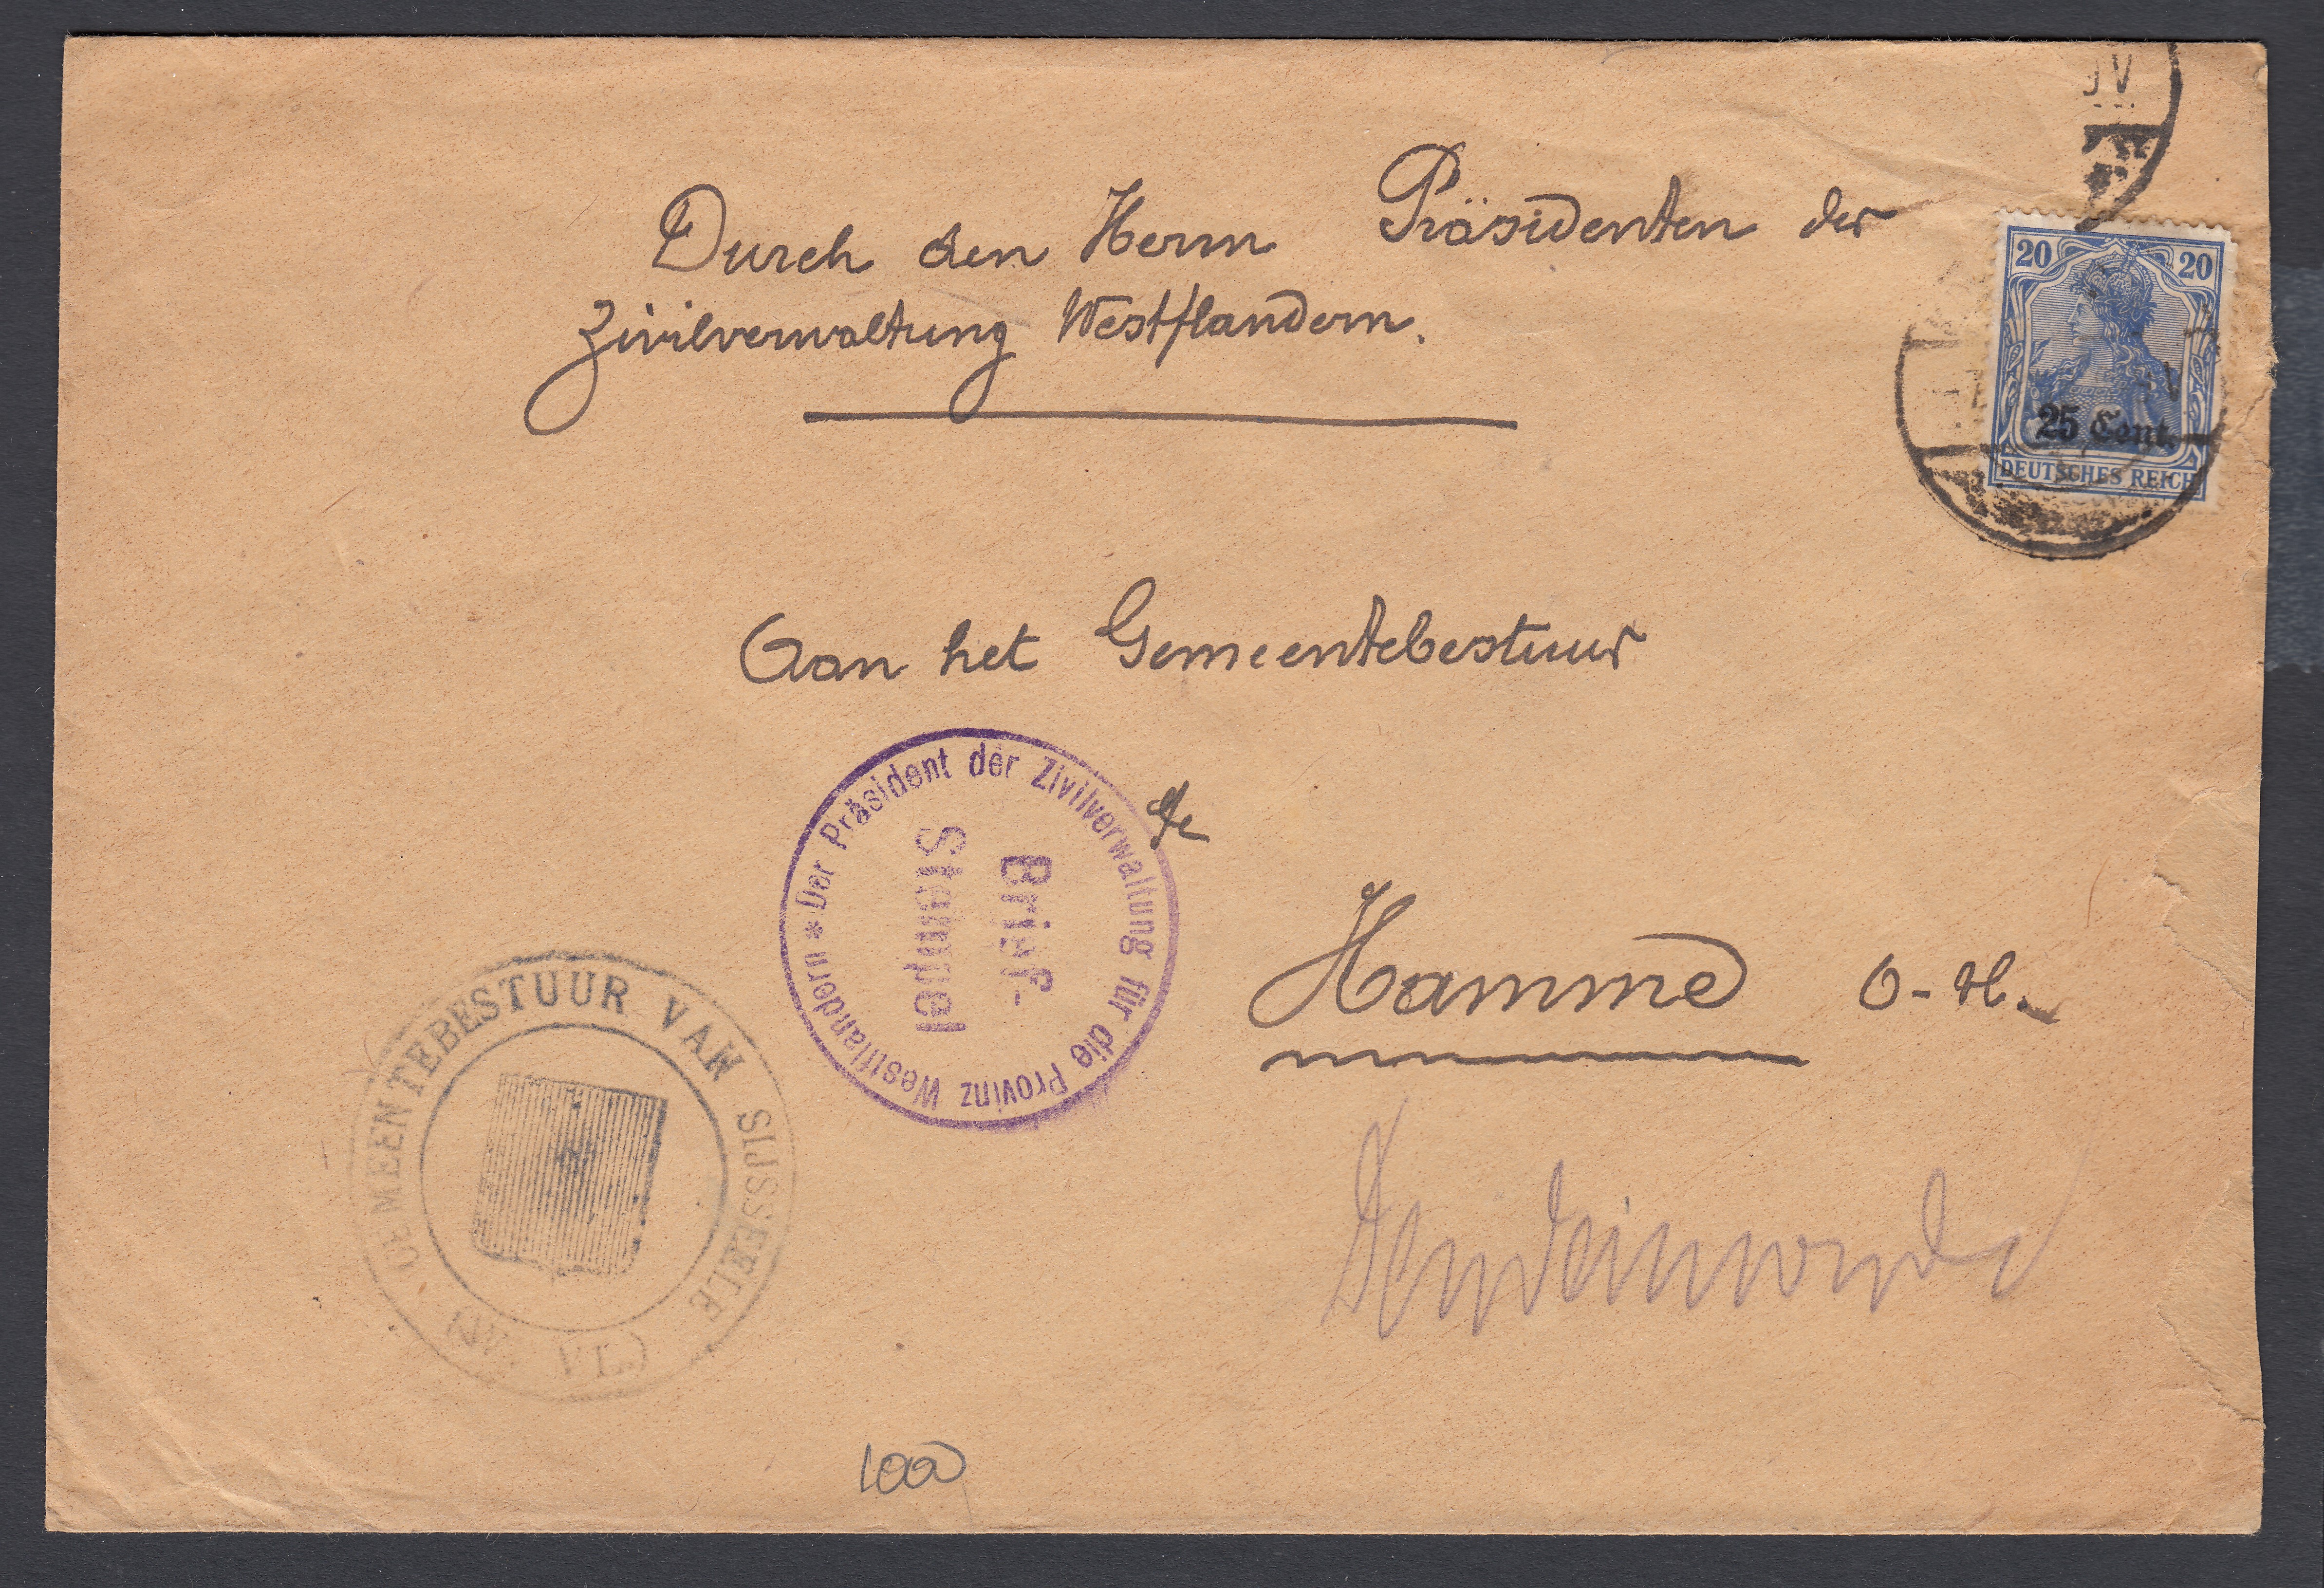 Durch den Herrn Präsidenten der
Zivilverwaltung Westflandern.
20 20
25 Cent.
DEUTSCHES REICH
Aan het Gemeentebestuur
te
Hamme O-Vl.
Der Präsident der Zivilverwaltung für die Provinz Westflandern *
Brief-
Stempel
GEMEENTEBESTUUR VAN SIJSSEELE
(W. VL.)
100